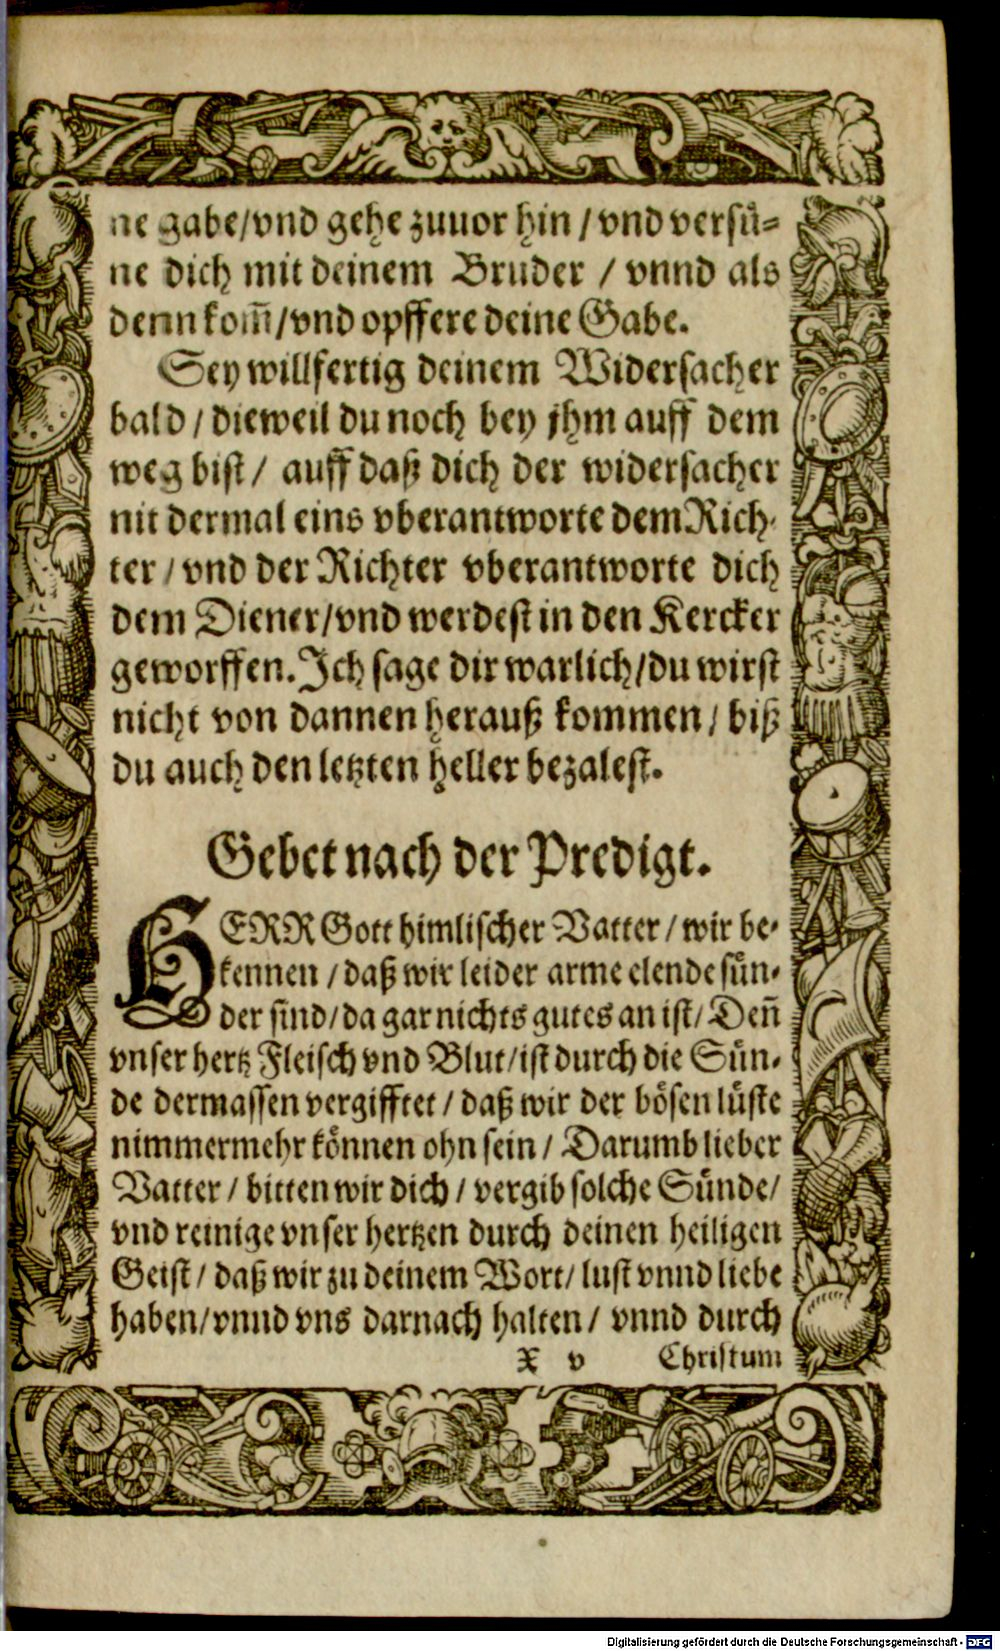 ne gabe/vnd gehe zuuor hin / vnd versuͤ⸗
ne dich mit deinem Bruder / vnnd als
denn kom̃/vnd opffere deine Gabe.
Sey willfertig deinem Widersacher
bald / dieweil du noch bey jhm auff dem
weg bist / auff daß dich der widersacher
nit dermal eins vberantworte dem Rich⸗
ter / vnd der Richter vberantworte dich
dem Diener/vnd werdest in den Kercker
geworffen. Ich sage dir warlich/du wirst
nicht von dannen herauß kommen / biß
du auch den letzten heller bezalest.
Gebet nach der Predigt.
HERR Gott himlischer Vatter / wir be⸗
kennen / daß wir leider arme elende suͤn⸗
der sind/da gar nichts gutes an ist/ Deñ
vnser hertz Fleisch vnd Blut/ist durch die Suͤn⸗
de dermassen vergifftet / daß wir der boͤsen luͤste
nimmermehr koͤnnen ohn sein / Darumb lieber
Vatter / bitten wir dich / vergib solche Suͤnde/
vnd reinige vnser hertzen durch deinen heiligen
Geist / daß wir zu deinem Wort/ lust vnnd liebe
haben/vnnd vns darnach halten / vnnd durch
X v Christum
Digitalisierung gefördert durch die Deutsche Forschungsgemeinschaft - DFG